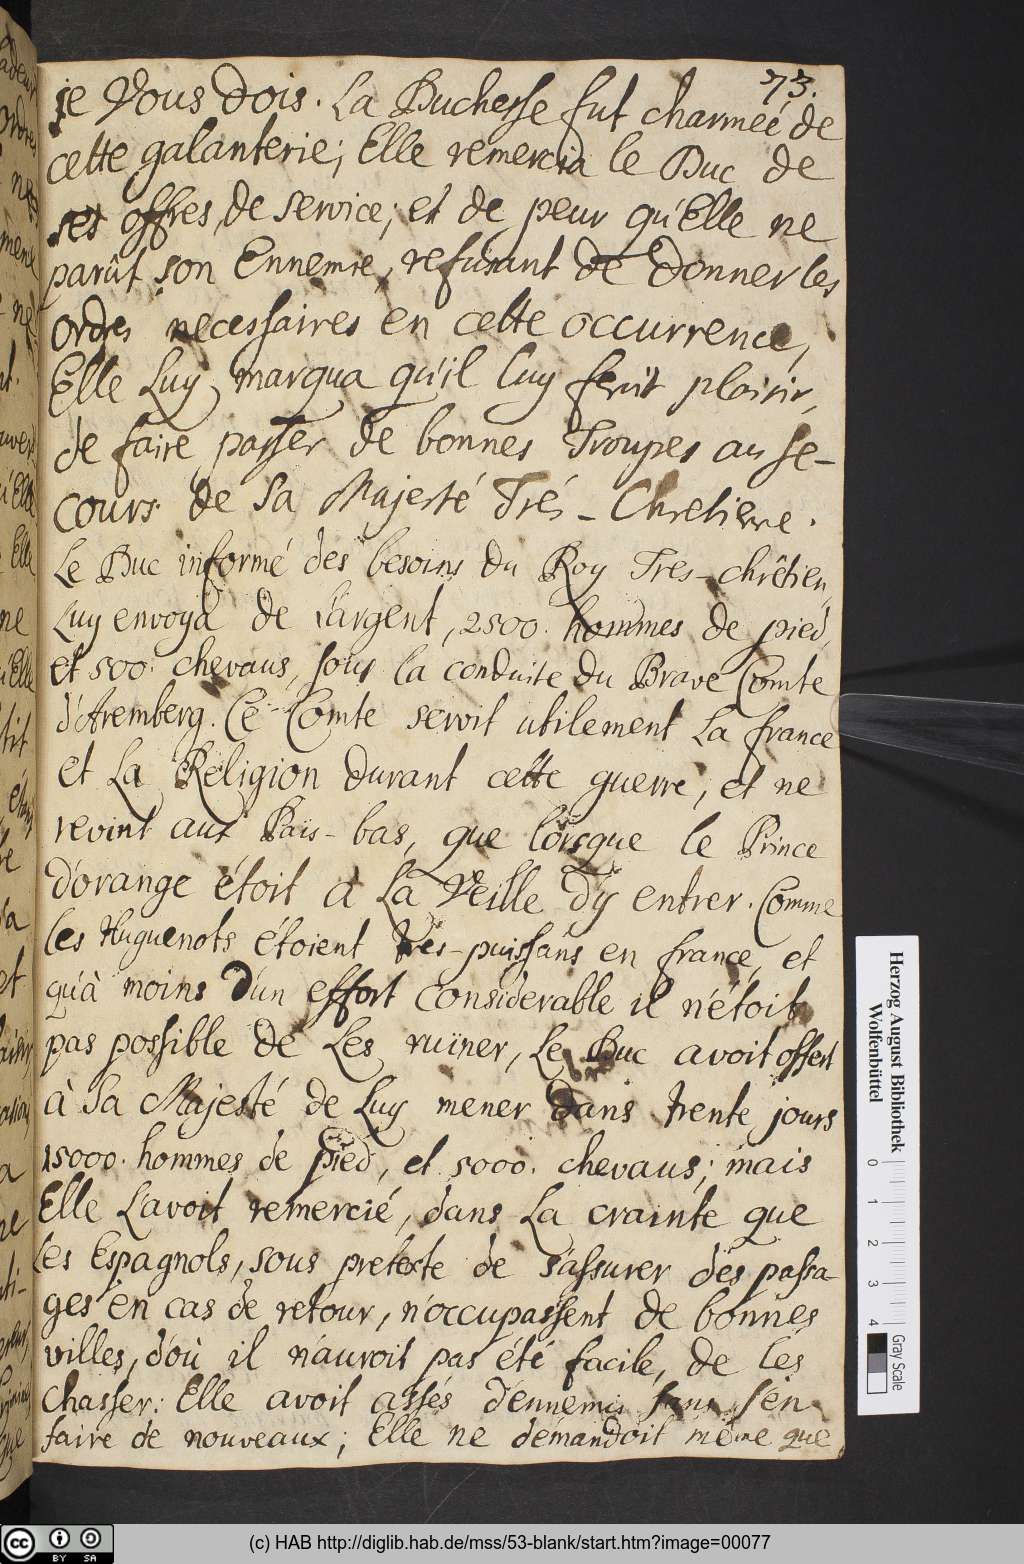 73.
je Vous dois. La Duchesse fut charmée de
cette galanterie; Elle remercia le Duc de
ses offres de service; et de peur qu'Elle ne
parût son Ennemie, refusant de donner les
ordres necessaires en cette occurrence,
Elle Luy marqua qu'il luy feroit plaisir,
de faire passer de bonnes Troupes au se-
cours de Sa Majesté Trés-Chretienne.
Le Duc informé des besoins du Roy Tres-chrêtien,
Luy envoya de l'argent, 2500. hommes de pied,
et 500. chevaus, sous la conduite du Brave Comte
d'Aremberg. Ce Comte servit utilement La france
et La Religion durant cette guerre; et ne
revint aux Païs-bas, que lorsque le Prince
d'orange étoit à La Veille d'y entrer. Comme
les Huguenots étoient tres-puissans en france, et
qu'à moins d'un effort considerable il n'étoit
pas possible de Les ruïner, Le Duc avoit offert
à Sa Majesté de Luy mener dans trente jours
15000. hommes de pied, et 5000. chevaus; mais
Elle L'avoit remercié, dans La crainte que
Les Espagnols, sous pretexte de s'assurer des passa-
ges en cas de retour, n'occupassent de bonnes
villes, d'où il n'auroit pas été facile, de les
chasser: Elle avoit assés d'ennemis sans s'en
faire de nouveaux; Elle ne demandoit même que
Herzog August Bibliothek
Wolfenbüttel
0 1 2 3 4
Gray Scale
cc BY SA
(c) HAB http://diglib.hab.de/mss/53-blank/start.htm?image=00077